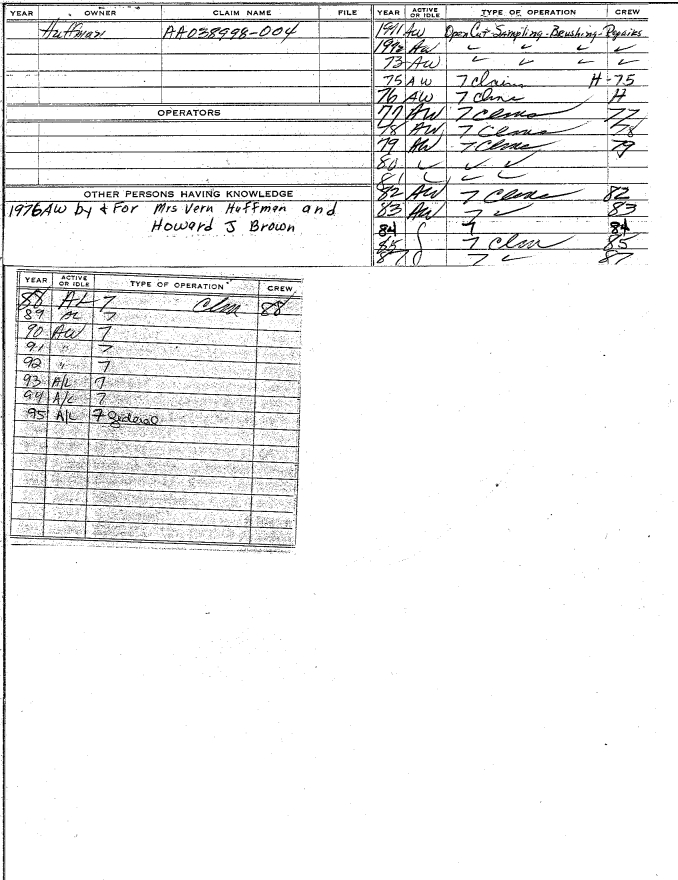 YEAR OWNER CLAIM NAME FILE
Huffman AA038998-004
OPERATORS
OTHER PERSONS HAVING KNOWLEDGE
1976 AW by & For Mrs Vern Huffman and
Howard J Brown
YEAR ACTIVE OR IDLE TYPE OF OPERATION CREW
1971 AW Open Cut-Sampling-Brushing-Repairs
1972 AW ✓ ✓ ✓ ✓
73 AW ✓ ✓ ✓ ✓
75 AW 7 Claims H-75
76 AW 7 Clms H
77 AW 7 Clms 77
78 AW 7 Clms 78
79 AW 7 Clms 79
80 ✓ ✓ ✓
81 ✓ ✓ ✓
82 AW 7 Clms 82
83 AW 7 ✓ 83
84 7 84
85 7 Clm 85
87 7 ✓ 87
YEAR ACTIVE OR IDLE TYPE OF OPERATION CREW
88 AL 7 Clm 88
89 AL 7
90 AW 7
91 " 7
92 " 7
93 A/L 7
94 A/L 7
95 A/L 7 federal